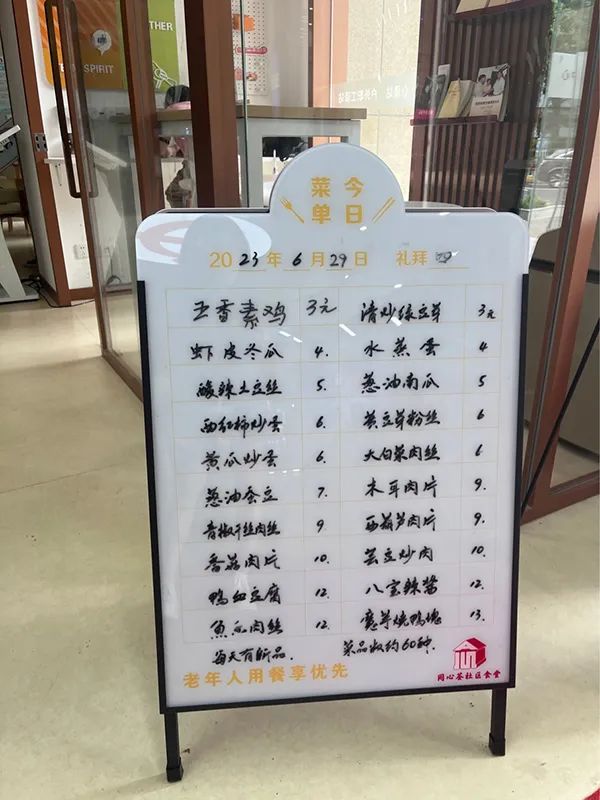 THER
TEAM SPIRIT
户外职工驿站
今日
菜单
2023年6月29日 礼拜四
五香素鸡 3元 清炒绿豆芽 3元
虾皮冬瓜 4. 水蒸蛋 4
酸辣土豆丝 5. 葱油南瓜 5
西红柿炒蛋 6. 黄豆芽粉丝 6
黄瓜炒蛋 6. 大白菜肉丝 6
葱油蚕豆 7. 木耳肉片 9.
青椒干丝肉丝 9 西葫芦肉片 9.
香菇肉片 10. 芸豆炒肉 10.
鸭血豆腐 12. 八宝辣酱 12.
鱼瓜肉丝 12. 魔芋烧鸭块 13.
每天有新品. 菜品故约60种.
老年人用餐享优先
同心荟社区食堂